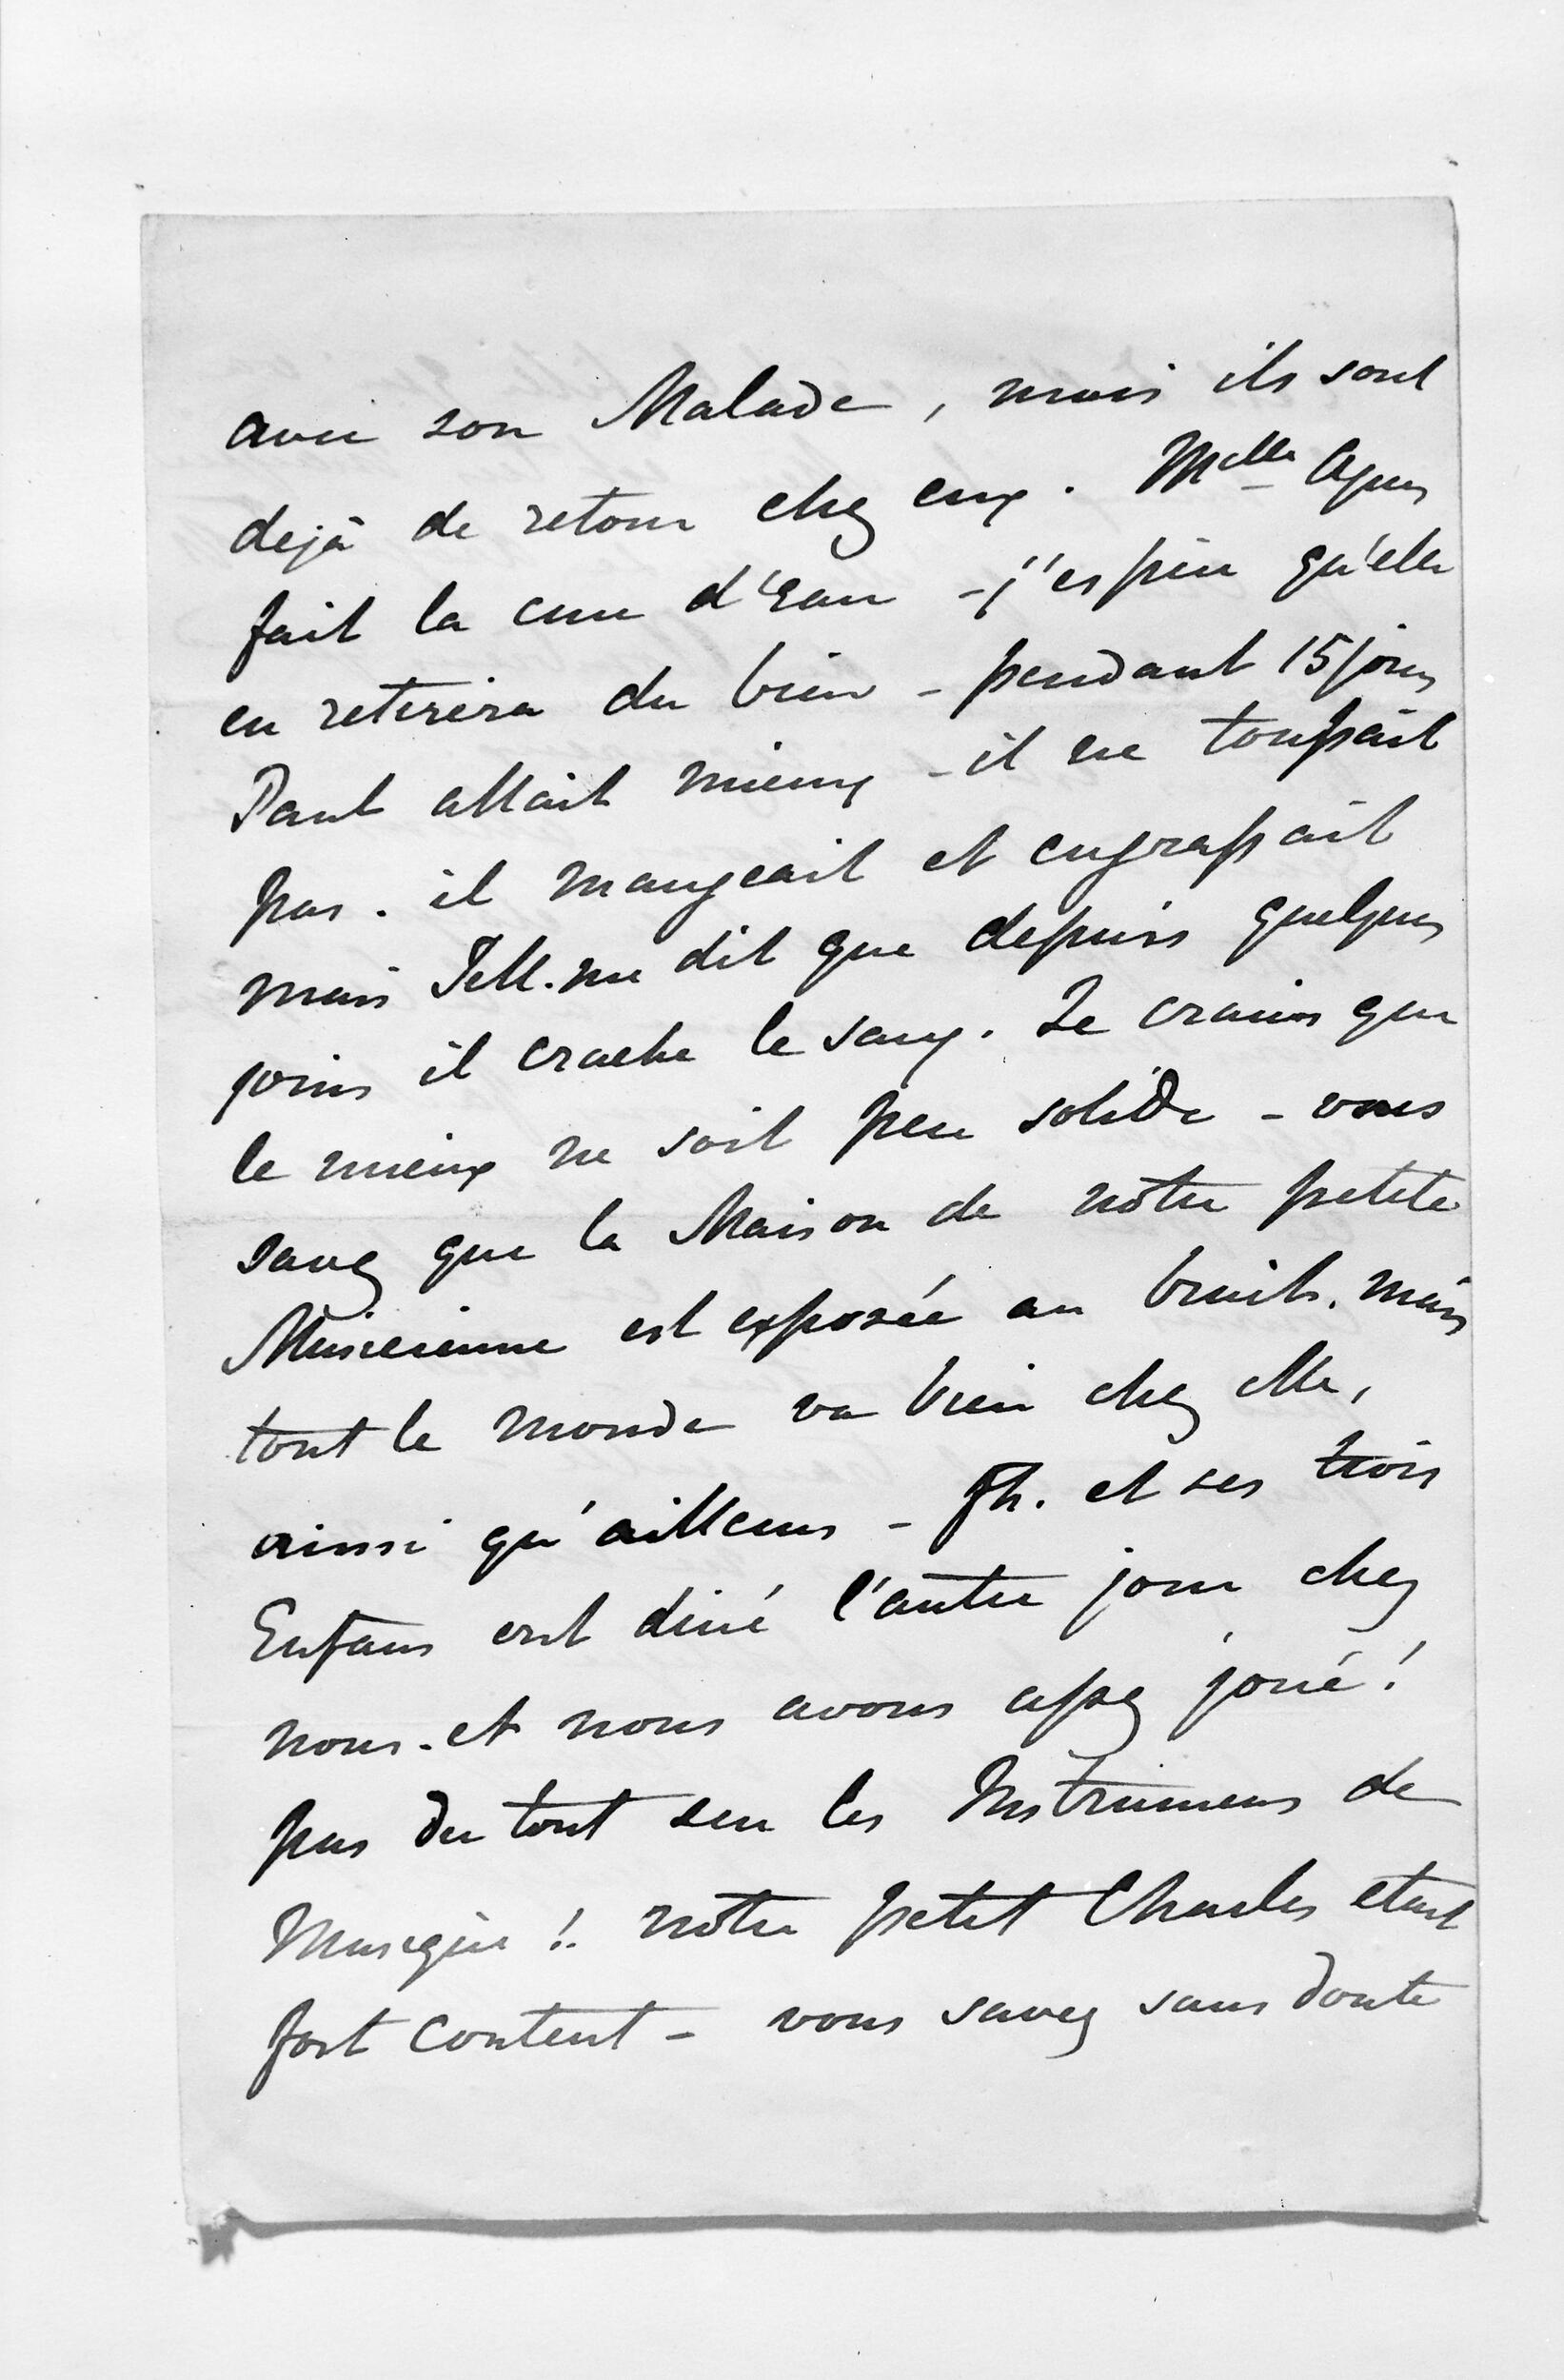 avec son Malade, mais ils sont
dejà de retour chez eux. Melle Agnes
fait la cure d'Eau - j'espère qu'elle
en retirera du bien - pendant 15 jours
Paul allait mieux - il ne toussait
pas. il mangeait et engrassait
mais Pell. me dit que depuis quelques
jours il crache le sang. Je crains que
le mieux ne soit peu solide - vous
savez que la Maison de nôtre petite
Musicienne est exposée au bruit. mais
tout le monde va bien chez elle,
ainsi qu'ailleurs - Th. et ses trois
Enfans ont diné l'autre jour chez
nous. et nous avons assez joué!
pas du tout sur les Instrumens de
Musique!! nôtre petit Charles etait
fort content - vous savez sans doute